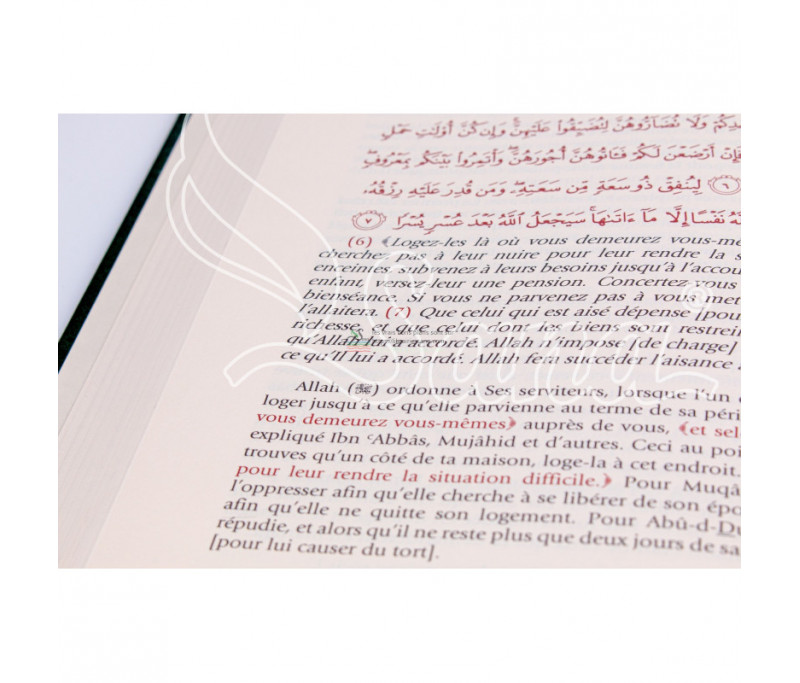 ـدِكُمْ وَلَا تُضَارُّوهُنَّ لِتُضَيِّقُوا۟ عَلَيْهِنَّ ۚ وَإِن كُنَّ أُو۟لَٰتِ حَمْلٍ
فَإِنْ أَرْضَعْنَ لَكُمْ فَـَٔاتُوهُنَّ أُجُورَهُنَّ ۖ وَأْتَمِرُوا۟ بَيْنَكُم بِمَعْرُوفٍ ۖ
٦ لِيُنفِقْ ذُو سَعَةٍ مِّن سَعَتِهِۦ ۖ وَمَن قُدِرَ عَلَيْهِ رِزْقُهُۥ
ـهُ نَفْسًا إِلَّا مَآ ءَاتَىٰهَا ۚ سَيَجْعَلُ ٱللَّهُ بَعْدَ عُسْرٍ يُسْرًا ٧
(6) ﴾Logez-les là où vous demeurez vous-mê
cherchez pas à leur nuire pour leur rendre la s
enceintes, subvenez à leurs besoins jusqu'à l'accou
enfant, versez leur une pension. Concertez-vous
bienséance. Si vous ne parvenez pas à vous met
l'allaitera. (7) Que celui qui est aisé dépense [pou
richesse, et que celui dont les biens sont restrein
qu'Allah lui a accordé. Allah n'impose [de charge]
ce qu'Il lui a accordé. Allah fera succéder l'aisance
Allah (ﷻ) ordonne à Ses serviteurs, lorsque l'un
loger jusqu'à ce qu'elle parvienne au terme de sa péri
vous demeurez vous-mêmes﴿ auprès de vous, ﴾et sel
expliqué Ibn ʿAbbâs, Mujâhid et d'autres. Ceci au poi
trouves qu'un côté de ta maison, loge-la à cet endroit.
pour leur rendre la situation difficile.﴿ Pour Muqâ
l'oppresser afin qu'elle cherche à se libérer de son épo
afin qu'elle ne quitte son logement. Pour Abû-d-Du
répudie, et alors qu'il ne reste plus que deux jours de sa
[pour lui causer du tort].
Sana